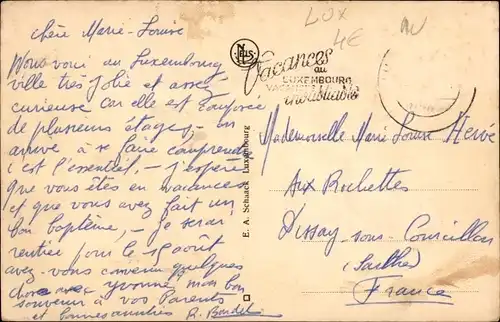 chère Marie-Louise
Nous voici au Luxembourg
ville très jolie et assez
curieuse car elle est composée
de plusieurs étages, - on
arrive à se faire comprendre
c'est l'essentiel, - j'espère
que vous êtes en vacances
et que vous avez fait un
bon baptême, - je serai
rentrée pour le 15 août
avez-vous convenu quelques
chose avec Yvonne, mon bon
souvenir à vos Parents
et bonnes amitiés R. Bardel
NELS
E. A. Schaack Luxembourg
LUX
4E
Vacances
au
LUXEMBOURG
inoubliables
Mademoiselle Marie Louise Hervé
Aux Rochettes
Dissay-sous-Courcillon
(Sarthe)
France